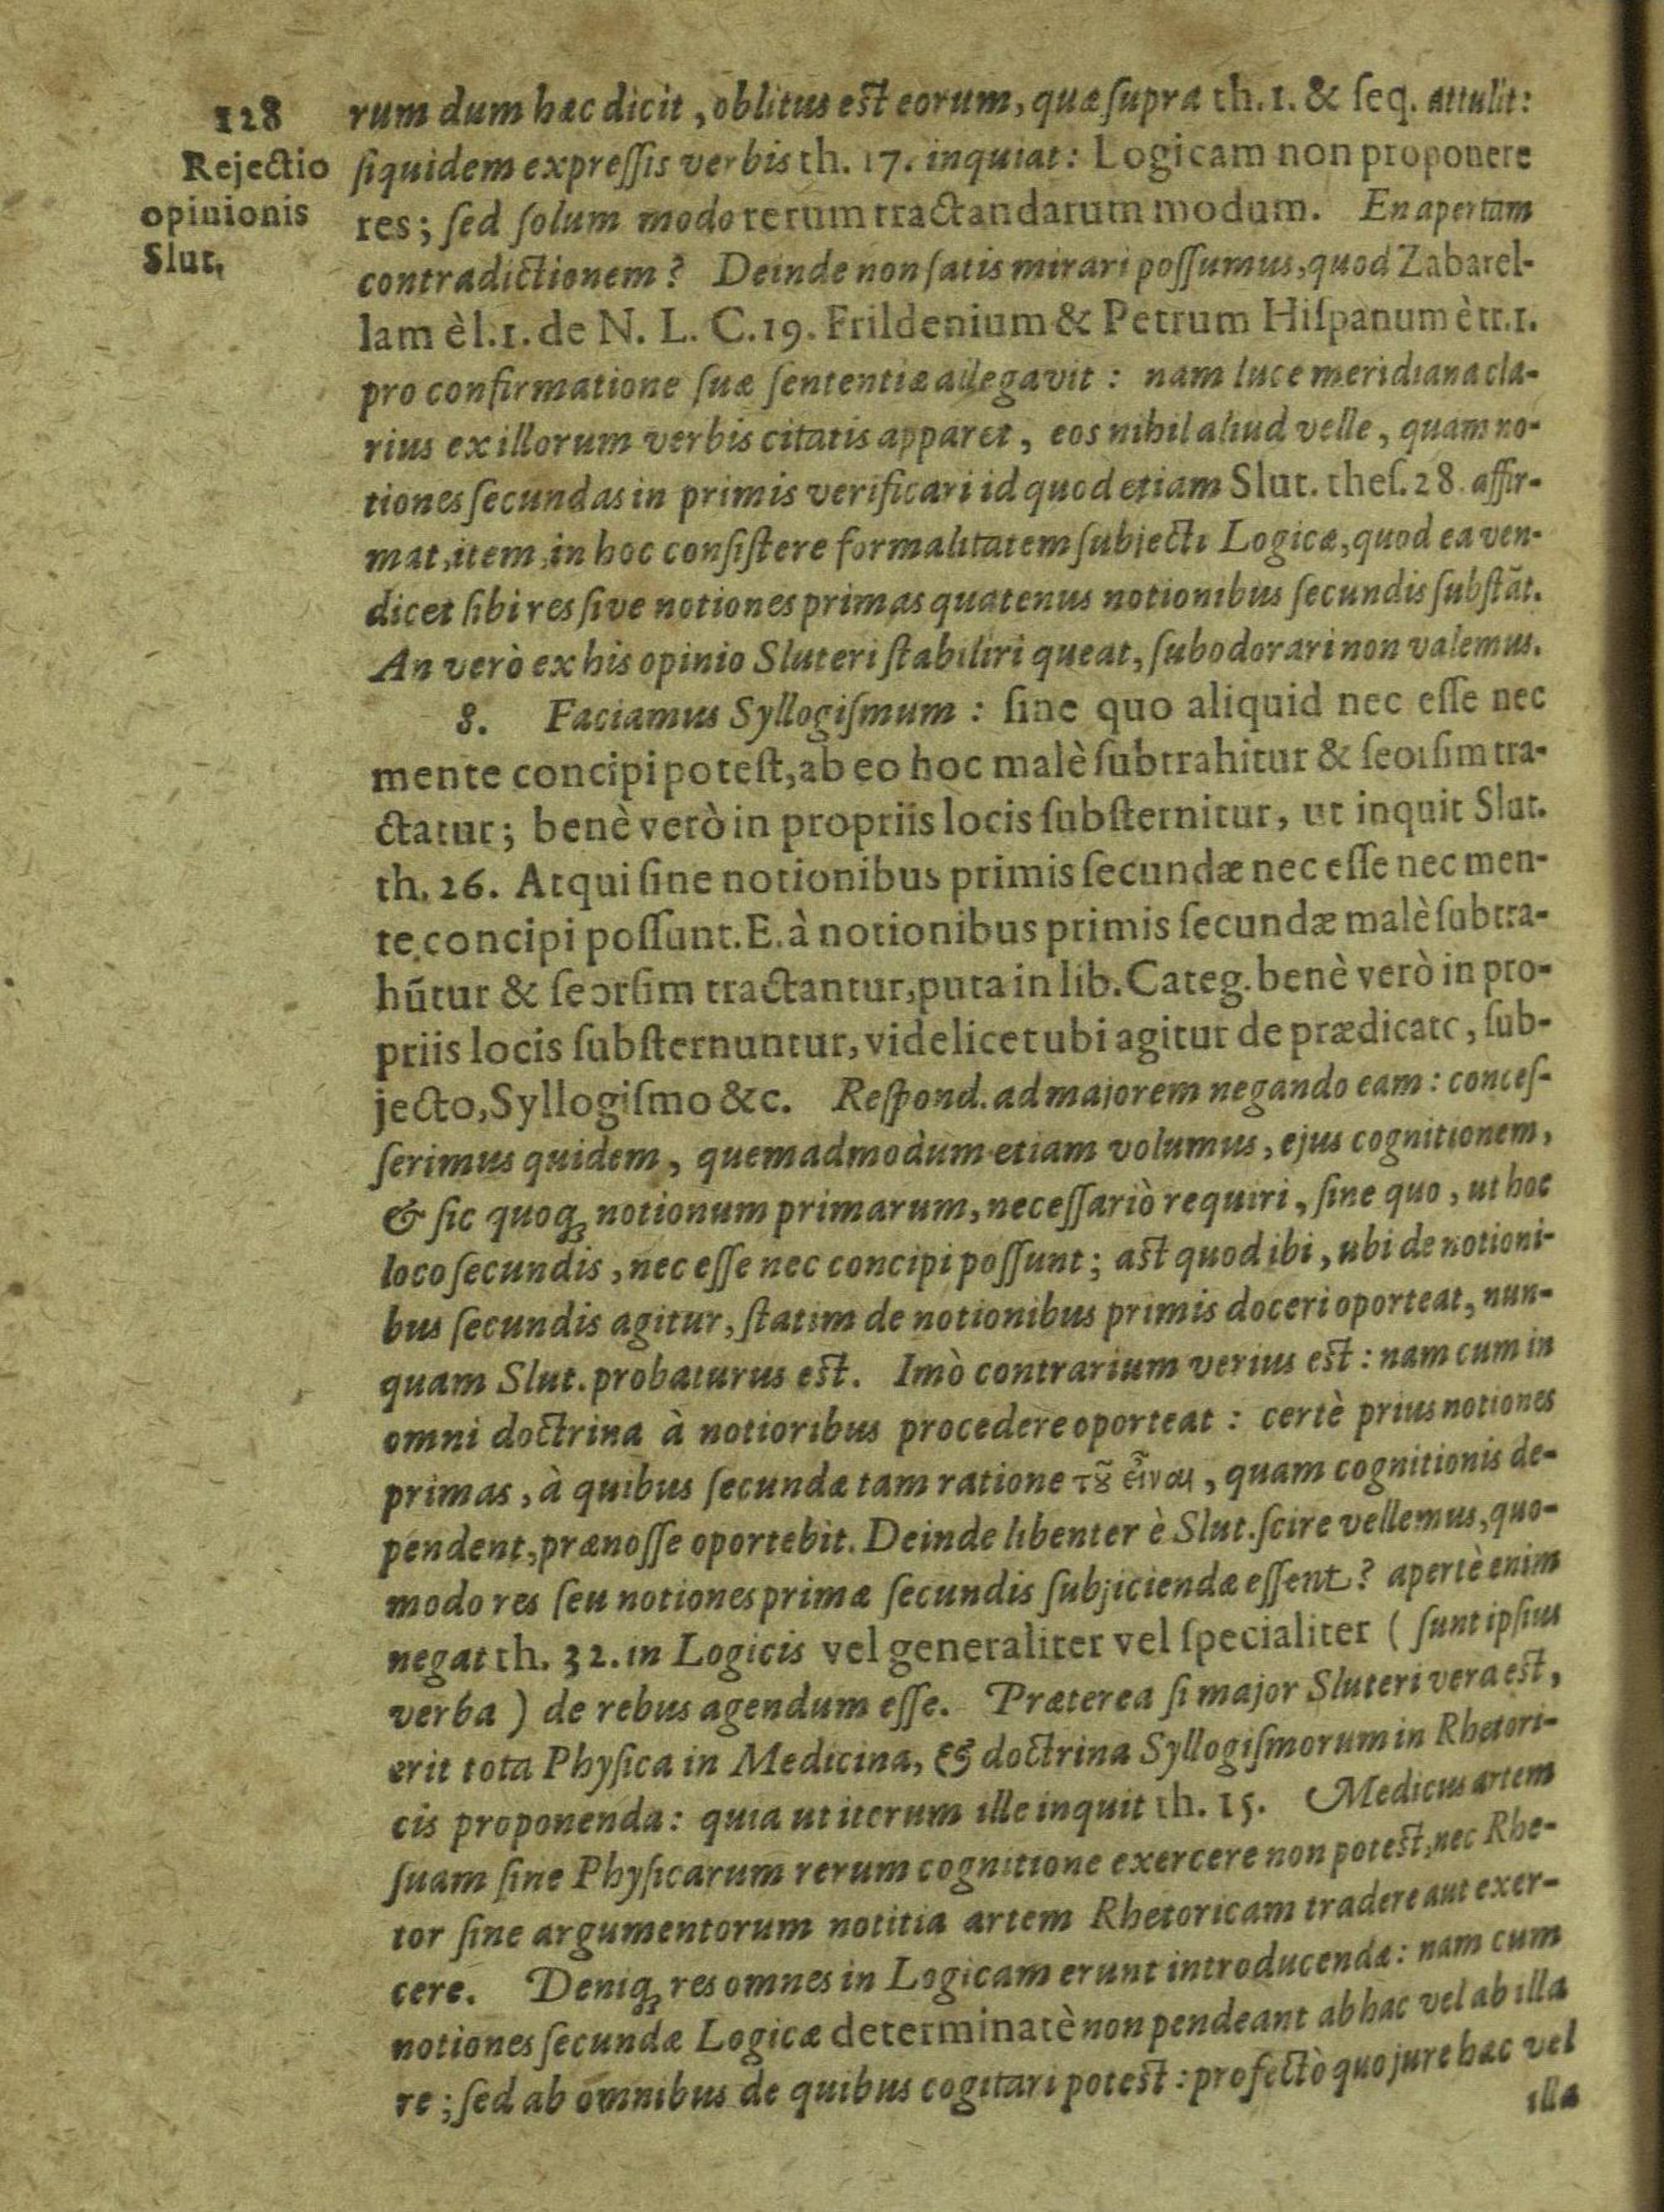 128
Rejectio
opinionis
Slut.
rum dum hæc dicit, oblitus est eorum, quæ ſupra th. 1. & ſeq. attulit:
ſiquidem expreſſis verbis th. 17. inquiat: Logicam non proponere
res; ſed ſolum modo rerum tractandarum modum. En apertam
contradictionem? Deinde non ſatis mirari poſſumus, quod Zabarel-
lam è l. 1. de N. L. C. 19. Frildenium & Petrum Hiſpanum è tr. 1.
pro confirmatione ſuæ ſententiæ allegavit: nam luce meridiana cla-
rius ex illorum verbis citatis apparet, eos nihil aliud velle, quam no-
tiones ſecundas in primis verificari id quod etiam Slut. theſ. 28. affir-
mat, item, in hoc conſiſtere formalitatem ſubjecti Logicæ, quod ea ven-
dicet ſibi res ſive notiones primas quatenus notionibus ſecundis ſubſtāt.
An verò ex his opinio Sluteri ſtabiliri queat, ſubodorari non valemus.
8. Faciamus Syllogiſmum: ſine quo aliquid nec eſſe nec
mente concipi poteſt, ab eo hoc malè ſubtrahitur & ſeorſim tra-
ctatur; benè verò in propriis locis ſubſternitur, ut inquit Slut.
th. 26. Atqui ſine notionibus primis ſecundæ nec eſſe nec men-
te concipi poſſunt. E. à notionibus primis ſecundæ malè ſubtra-
hūtur & ſeorſim tractantur, puta in lib. Categ. benè verò in pro-
priis locis ſubſternuntur, videlicet ubi agitur de prædicato, ſub-
jecto, Syllogiſmo &c. Reſpond. ad majorem negando eam: conceſ-
ſerimus quidem, quemadmodum etiam volumus, ejus cognitionem,
& ſic quoq; notionum primarum, neceſſariò requiri, ſine quo, ut hoc
loco ſecundis, nec eſſe nec concipi poſſunt; ast quod ibi, ubi de notioni-
bus ſecundis agitur, ſtatim de notionibus primis doceri oporteat, nun-
quam Slut. probaturus est. Imò contrarium verius est: nam cum in
omni doctrina à notioribus procedere oporteat: certè prius notiones
primas, à quibus ſecundæ tam ratione τȣ͂ εἶναι, quam cognitionis de-
pendent, prænoſſe oportebit. Deinde libenter è Slut. ſcire vellemus, quo-
modo res ſeu notiones primæ ſecundis ſubjiciendæ eſſent? apertè enim
negat th. 32. in Logicis vel generaliter vel ſpecialiter (ſunt ipſius
verba) de rebus agendum eſſe. Præterea ſi major Sluteri vera est,
erit tota Phyſica in Medicina, & doctrina Syllogiſmorum in Rhetori-
cis proponenda: quia ut iterum ille inquit th. 15. Medicus artem
ſuam ſine Phyſicarum rerum cognitione exercere non potest, nec Rhe-
tor ſine argumentorum notitia artem Rhetoricam tradere aut exer-
cere. Deniq; res omnes in Logicam erunt introducendæ: nam cum
notiones ſecundæ Logicæ determinatè non pendeant ab hac vel ab illa
re; ſed ab omnibus de quibus cogitari potest: profectò quo jure hac vel
illa